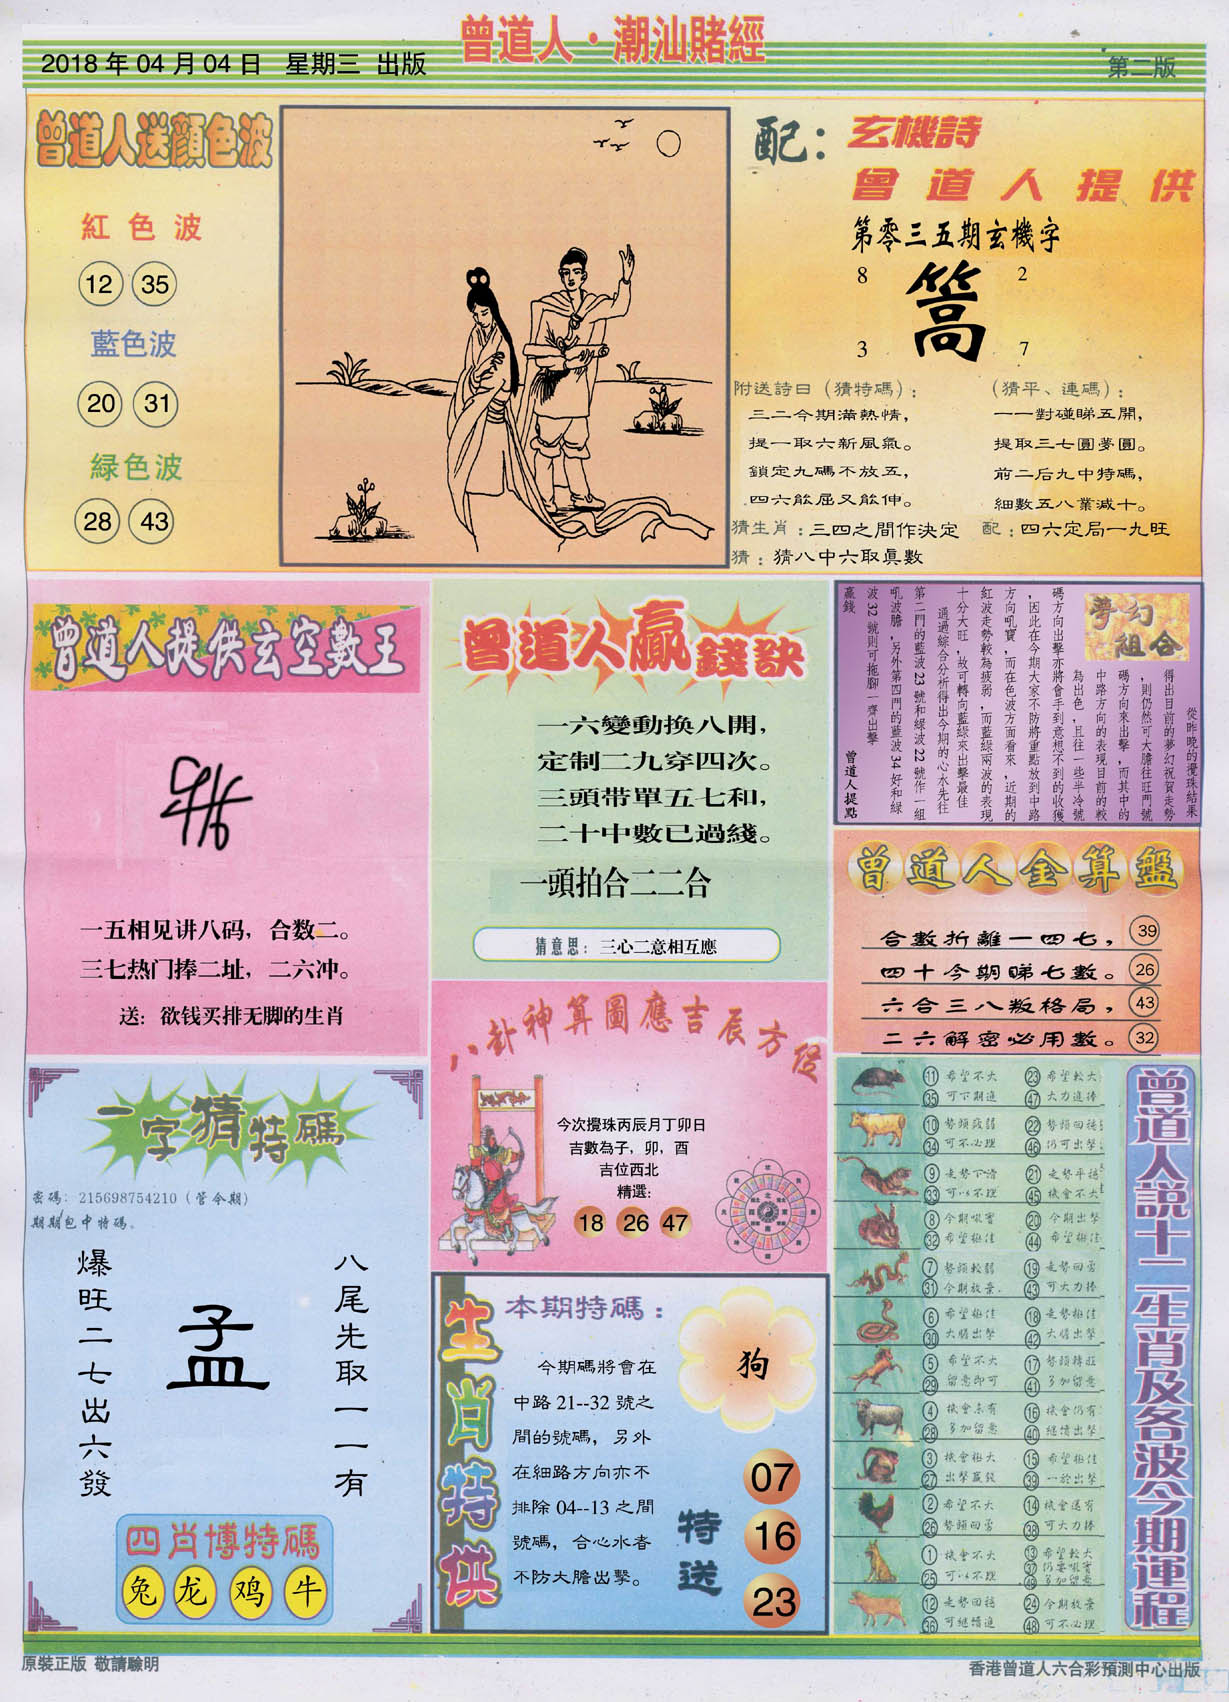 曾道人·潮汕賭經
2018年04月04日 星期三 出版
第二版
曾道人送顔色波
紅色波
12 35
藍色波
20 31
緑色波
28 43
配：玄機詩
曾道人提供
第零三五期玄機字
8 2
篙
3 7
附送詩日（猜特碼）：
三二今期滿熱情，
提一取六新風氣。
鎖定九碼不放五，
四六能屈又能伸。
（猜平、連碼）：
一一對碰睇五開，
提取三七圓夢圓。
前二后九中特碼，
細數五八業減十。
猜生肖：三四之間作決定
配：四六定局一九旺
猜：猜八中六取真數
曾道人提供玄空數王
一五相见讲八码，合数二。
三七热门捧二址，二六冲。
送：欲钱买排无脚的生肖
曾道人贏錢訣
一六變動換八開，
定制二九穿四次。
三頭带單五七和，
二十中數已過綫。
一頭拍合二二合
猜意思：三心二意相互應
夢幻組合
從昨晚的攪珠結果
得出目前的夢幻祝賀走勢
，則仍然可大膽往旺門號
碼方向來出擊，而其中的
中路方向的表現目前的較
為出色，且往一些半冷號
碼方向出擊亦將會手到意想不到的收獲
，因此在今期大家不防將重點放到中路
方向吼寶，而在色波方面看來，近期的
紅波走勢較為疲弱，而藍綠兩波的表現
十分大旺，故可轉向藍綠來出擊最佳
通過綜合分析得出今期的心水先往
第二門的藍波23號和緑波22號作一組
吼波膽，另外第四門的藍波34好和綠
波32號則可拖腳一齊出擊
贏錢
曾道人提點
曾道人金算盤
合數折離一四七， 39
四十今期睇七數。 26
六合三八叛格局， 43
二六解密必用數。 32
八卦神算圖應吉辰方位
今次攪珠丙辰月丁卯日
吉數為子，卯，酉
吉位西北
精選：
18 26 47
一字猜特碼
密碼：215698754210（管今期）
期期包中特碼。
八尾先取一一有
孟
爆旺二七出六發
四肖博特碼
兔 龙 鸡 牛
生肖特供
本期特碼：
今期碼將會在
中路21--32號之
間的號碼，另外
在細路方向亦不
排除04--13之間
號碼，合心水者
不防大膽出擊。
狗
特送
07
16
23
曾道人説十二生肖及各波今期運程
11 希望不大 23 希望較大
35 可下期進 47 大力進捧
10 勢頭疲弱 22 勢頭回穩
34 可不必理 46 仍可出擊
9 走勢下滑 21 走勢平穩
33 可以不理 45 機會不大
8 今期吸寶 20 今期出擊
32 希望極佳 44 希望極佳
7 勢頭較弱 19 走勢回勇
31 今期放棄 43 可大力捧
6 希望極佳 18 走勢極佳
30 大膽出擊 42 大膽出擊
5 希望不大 17 勢頭轉旺
29 留意即可 41 多加留意
4 機會未有 16 機會仍有
28 多加留意 40 繼續出擊
3 機會極大 15 希望極佳
27 出擊贏錢 39 一於出擊
2 希望不大 14 機會還有
26 勢頭回勇 38 可大力捧
1 機會不大 13 希望較大
25 可以不理 37 仍要吸寶
49 多加留意
12 走勢回穩 24 今期放棄
36 可繼續進 48 可不必理
原裝正版 敬請驗明
香港曾道人六合彩預測中心出版